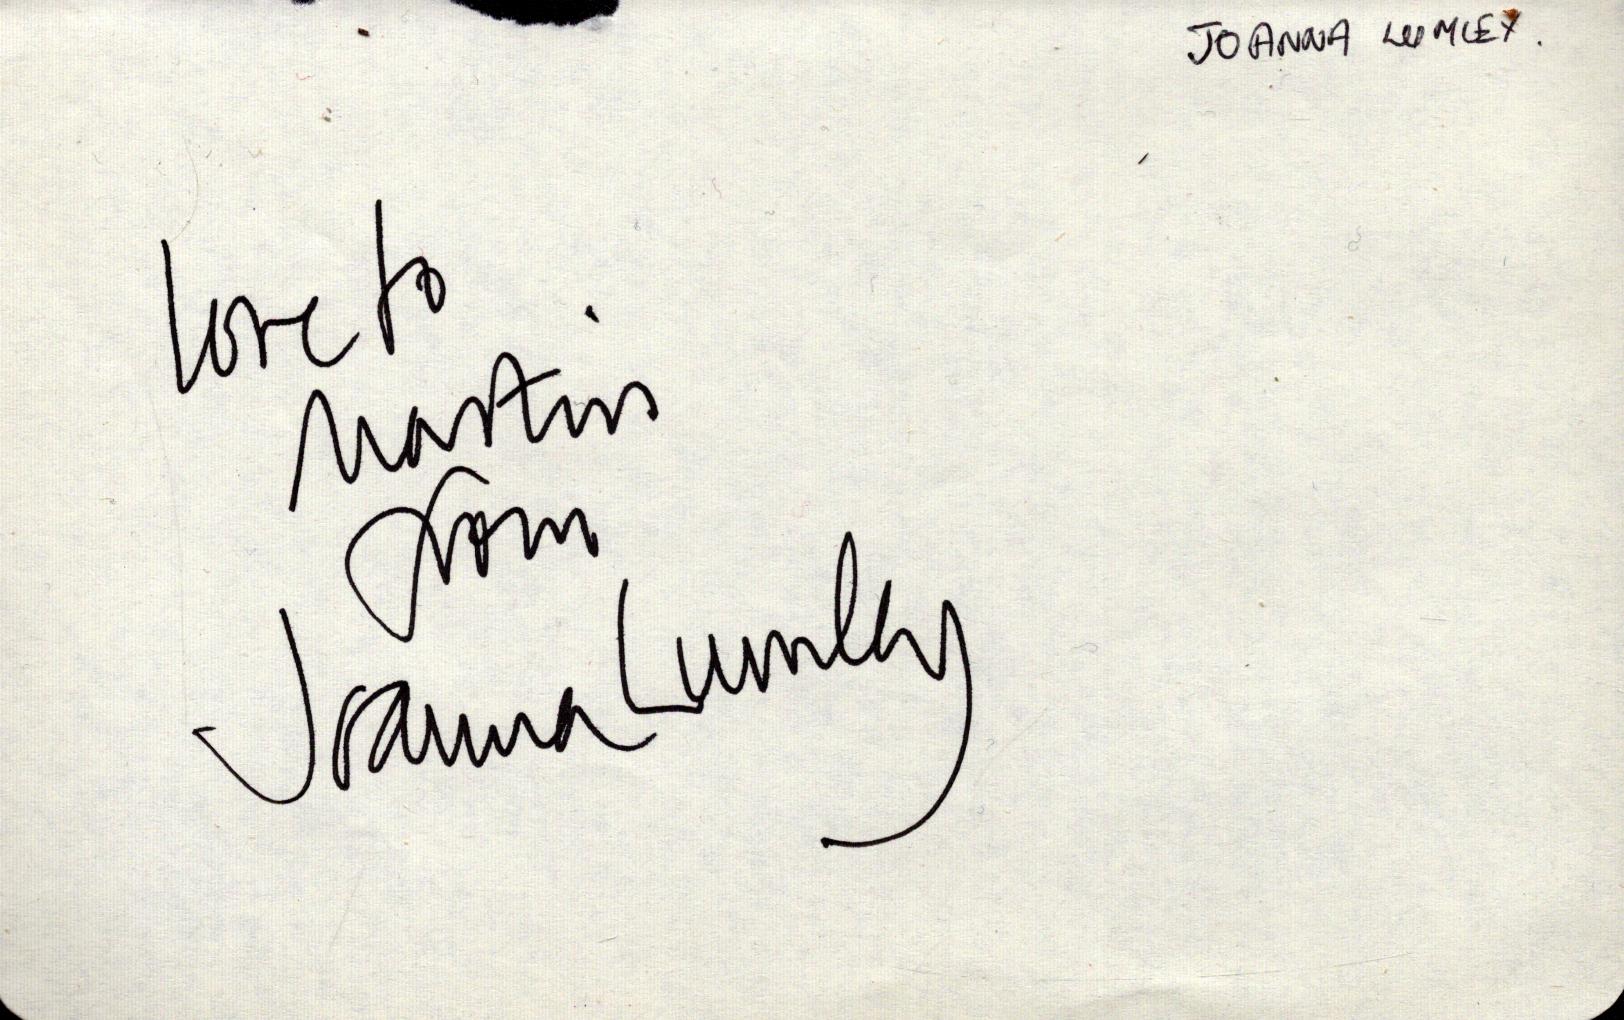 JOANNA LUMLEY.
love to
Martin
from
Joanna Lumley